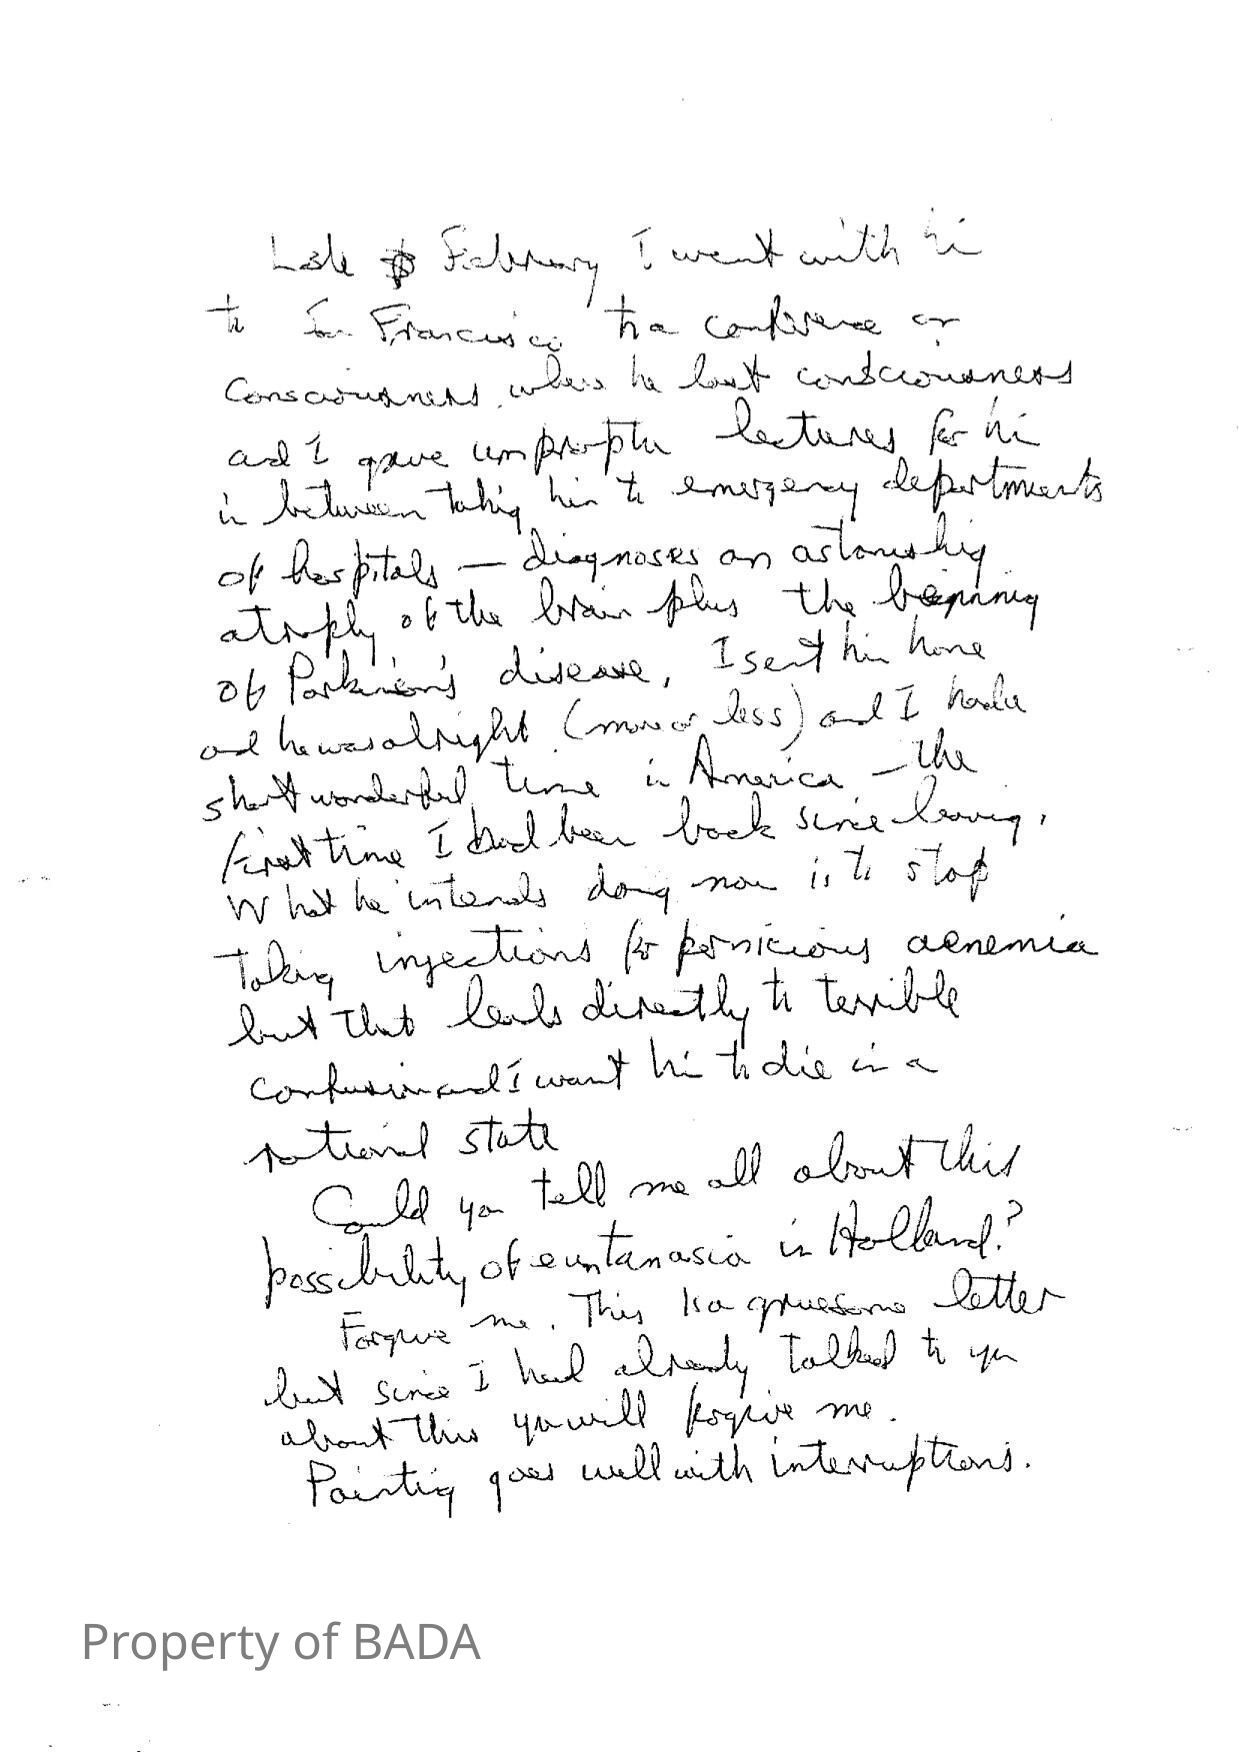 Late February I went with him
to San Francisco to a conference on
Consciousness, where he lost consciousness
and I gave impromptu lectures for him
in between taking him to emergency departments
of hospitals — diagnoses an astonishing
atrophy of the brain plus the beginning
of Parkinson's disease, I sent him home
and he was alright (more or less) and I had a
short wonderful time in America — the
first time I had been back since leaving.
What he intends doing now is to stop
taking injections for pernicious aenemia
but that leads directly to terrible
confusion and I want him to die in a
rational state
Could you tell me all about this
possibility of euntanasia in Holland?
Forgive me. This is a gruesome letter
but since I had already talked to you
about this you will forgive me.
Painting goes well with interruptions.
Property of BADA